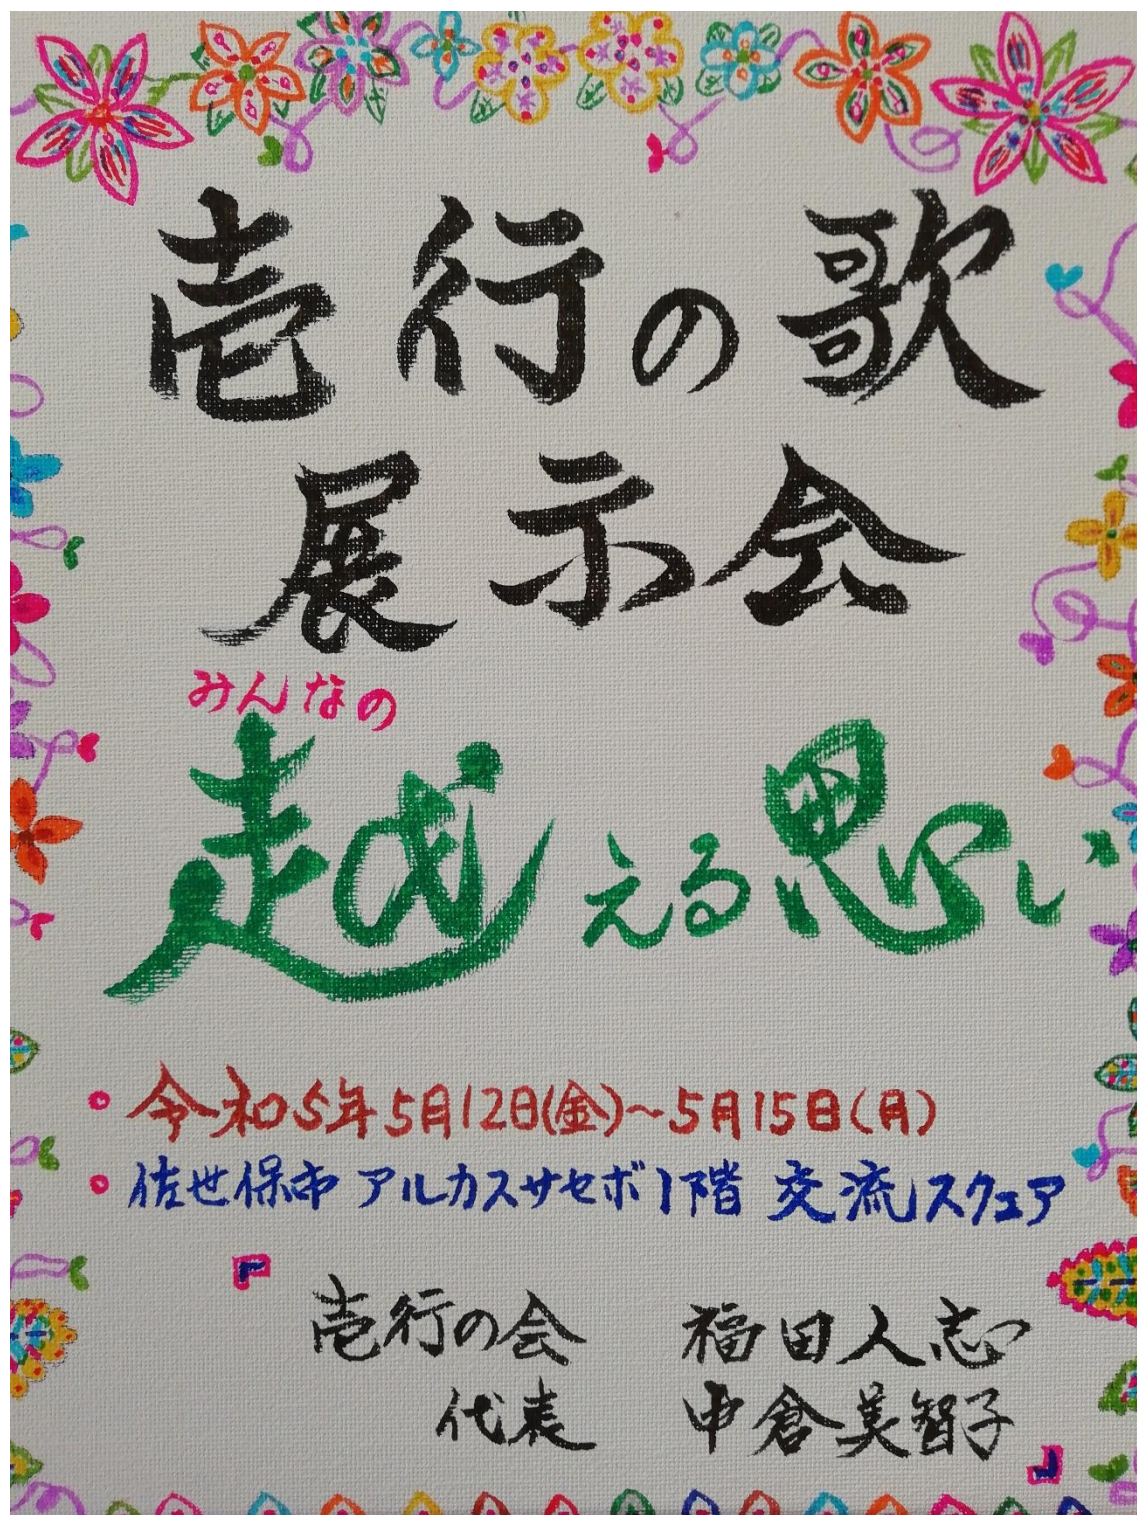 壱行の歌
展示会
みんなの
越える思い
令和5年5月12日(金)~5月15日(月)
佐世保市 アルカスサセボ1階 交流スクェア
『壱行の会 福田人志
代表 中倉美智子』